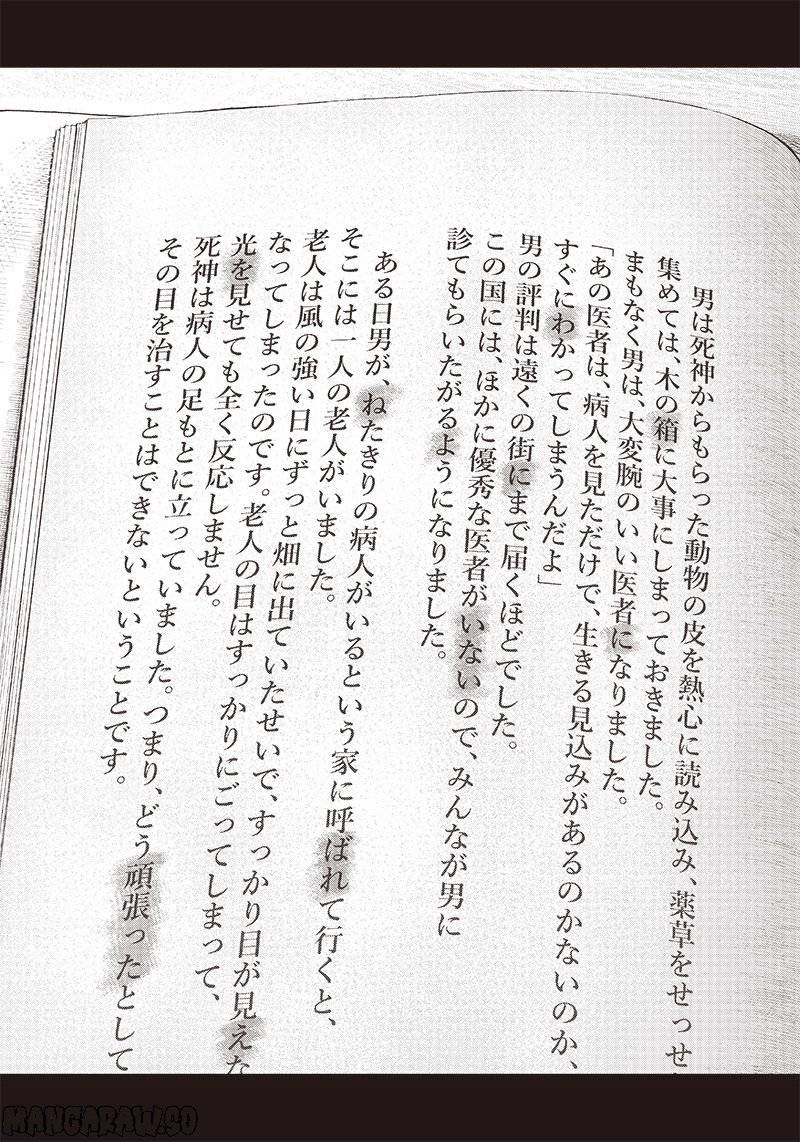 男は死神からもらった動物の皮を熱心に読み込み、薬草をせっせ
集めては、木の箱に大事にしまっておきました。
まもなく男は、大変腕のいい医者になりました。
「あの医者は、病人を見ただけで、生きる見込みがあるのかないのか、
すぐにわかってしまうんだよ」
男の評判は遠くの街にまで届くほどでした。
この国には、ほかに優秀な医者がいないので、みんなが男に
診てもらいたがるようになりました。
ある日男が、ねたきりの病人がいるという家に呼ばれて行くと、
そこには一人の老人がいました。
老人は風の強い日にずっと畑に出ていたせいで、すっかり目が見えな
なってしまったのです。老人の目はすっかりにごってしまって、
光を見せても全く反応しません。
死神は病人の足もとに立っていました。つまり、どう頑張ったとして
その目を治すことはできないということです。
MANGARAW.SO